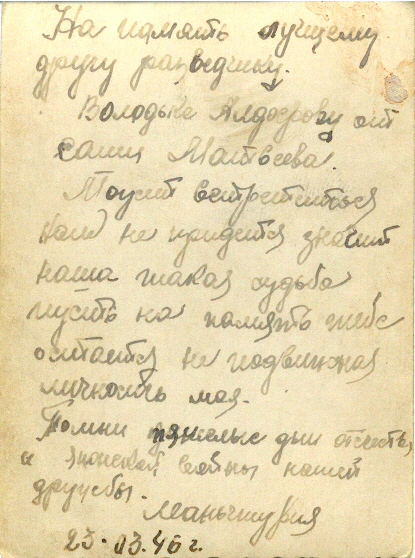 На память лучшему
другу разведчику.
Володьке Алдоерову от
Саши Матвеева.
Может встретиться
нам не придется значит
наша такая судьба
пусть на память тебе
остается не подвижная
личность моя.
Помни тяжелые дни отечеств,
и японской войны нашей
дружбы.
Маньчжурия
23.03.46 г.